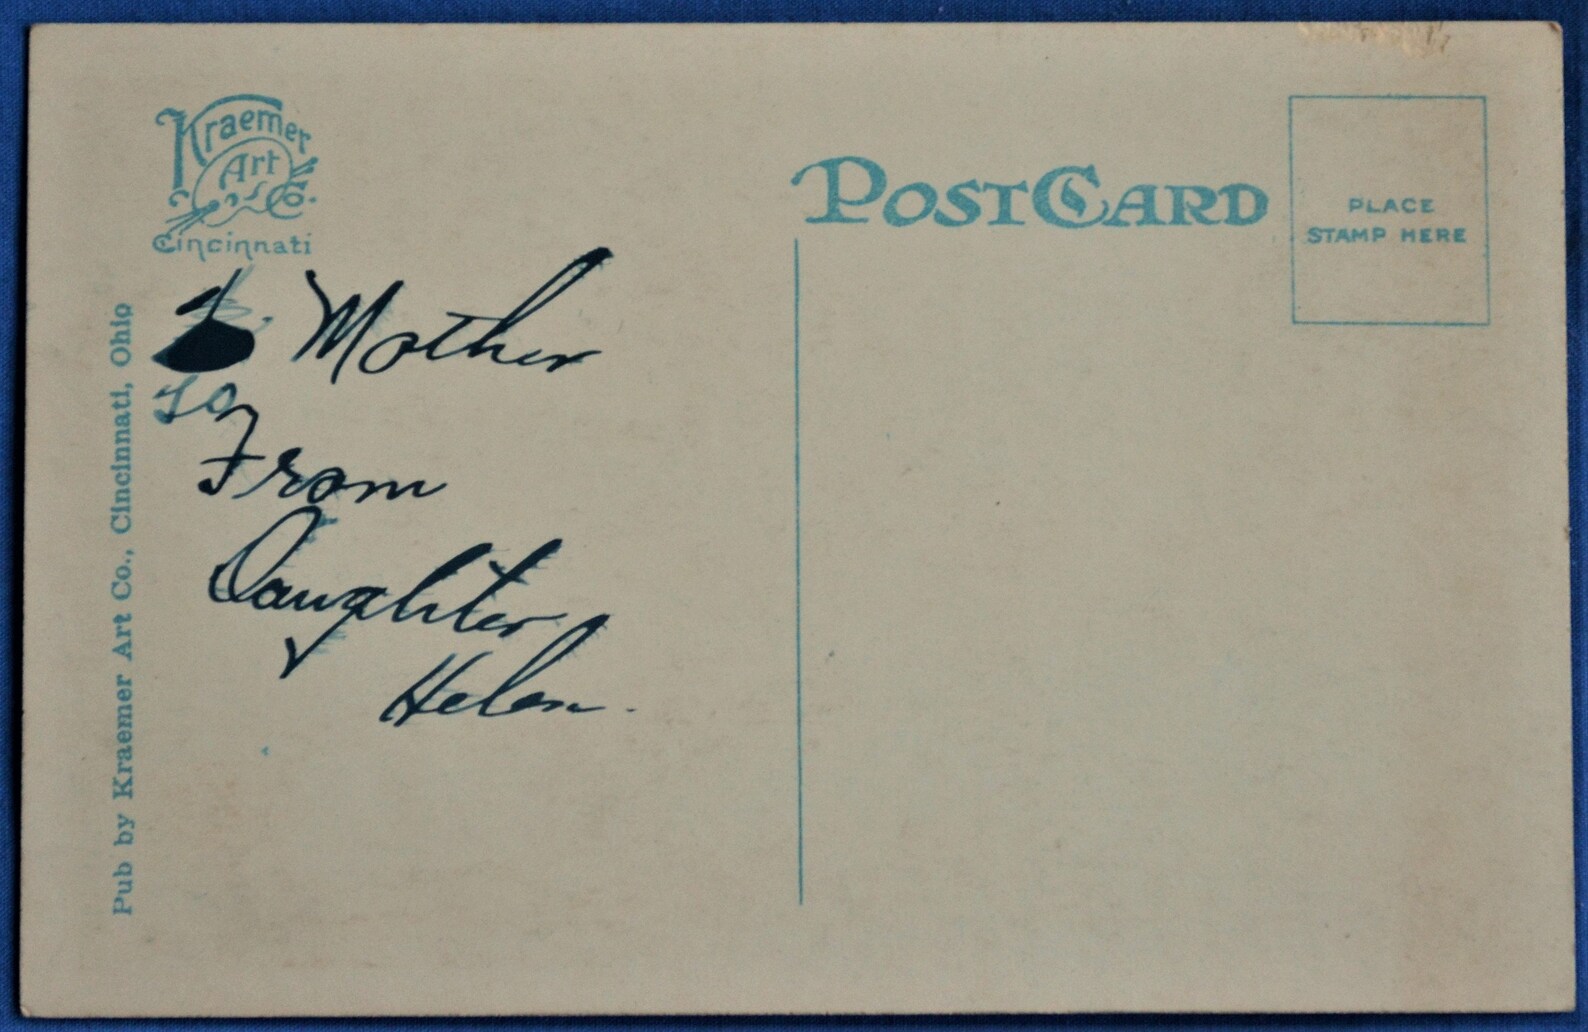 Kraemer
Art
Co.
Cincinnati
POSTCARD
PLACE
STAMP HERE
Pub by Kraemer Art Co., Cincinnati, Ohio
To Mother
To
From
Daughter
Helen.